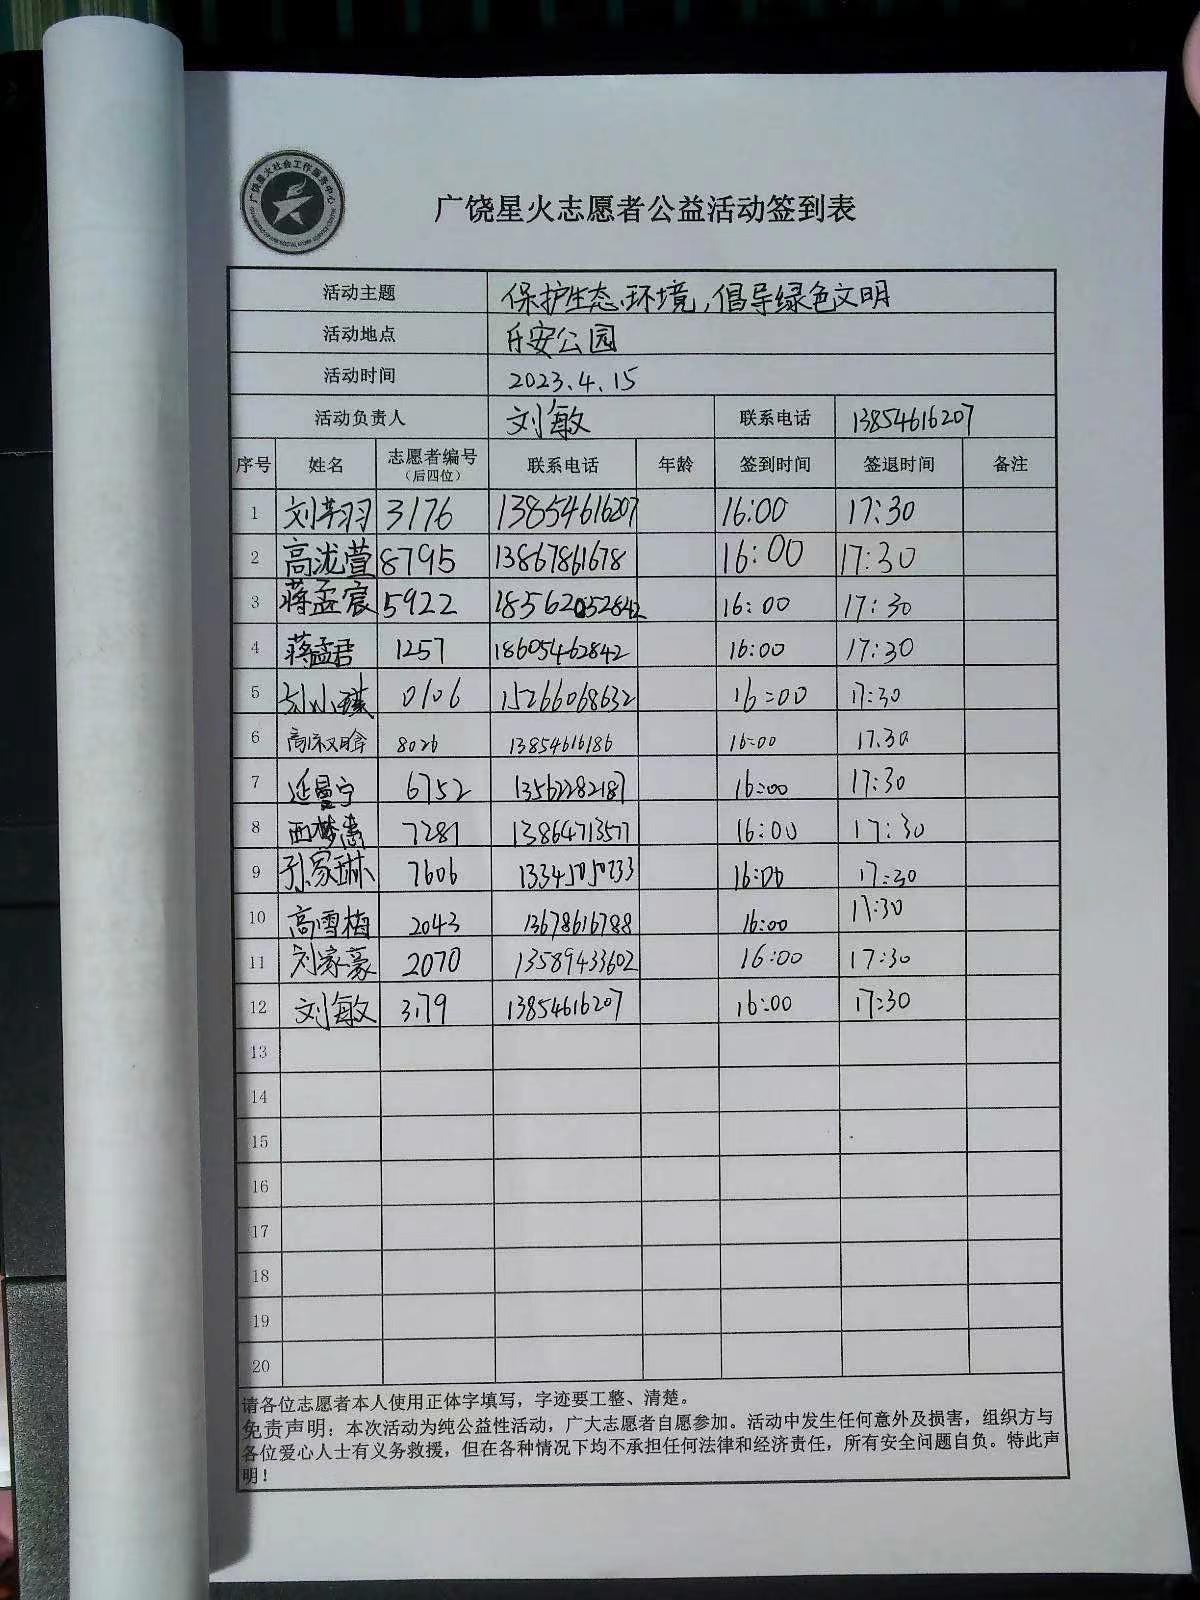 广饶星火社会工作服务中心
广饶星火志愿者公益活动签到表
活动主题 保护生态环境,倡导绿色文明
活动地点 乐安公园
活动时间 2023.4.15
活动负责人 刘敏 联系电话 13854616207
序号 姓名 志愿者编号（后四位） 联系电话 年龄 签到时间 签退时间 备注
1 刘芊羽 3176 13854616207 16:00 17:30
2 高泷萱 8795 13867861678 16:00 17:30
3 蒋孟宸 5922 18562052842 16:00 17:30
4 蒋孟君 1257 18605462842 16:00 17:30
5 刘小琪 0106 15266068632 16:00 17:30
6 8026 13854616186 16:00 17.30
7 延曼宁 6752 13562282187 16:00 17:30
8 7281 13864713577 16:00 17:30
9 孙家琳 7606 16:00 17:30
10 高雪梅 2043 13678616788 16:00 17:30
11 刘家豪 2070 13589433602 16:00 17:30
12 刘敏 3179 13854616207 16:00 17:30
13
14
15
16
17
18
19
20
请各位志愿者本人使用正体字填写，字迹要工整、清楚。
免责声明：本次活动为纯公益性活动，广大志愿者自愿参加。活动中发生任何意外及损害，组织方与
各位爱心人士有义务救援，但在各种情况下均不承担任何法律和经济责任，所有安全问题自负。特此声
明！